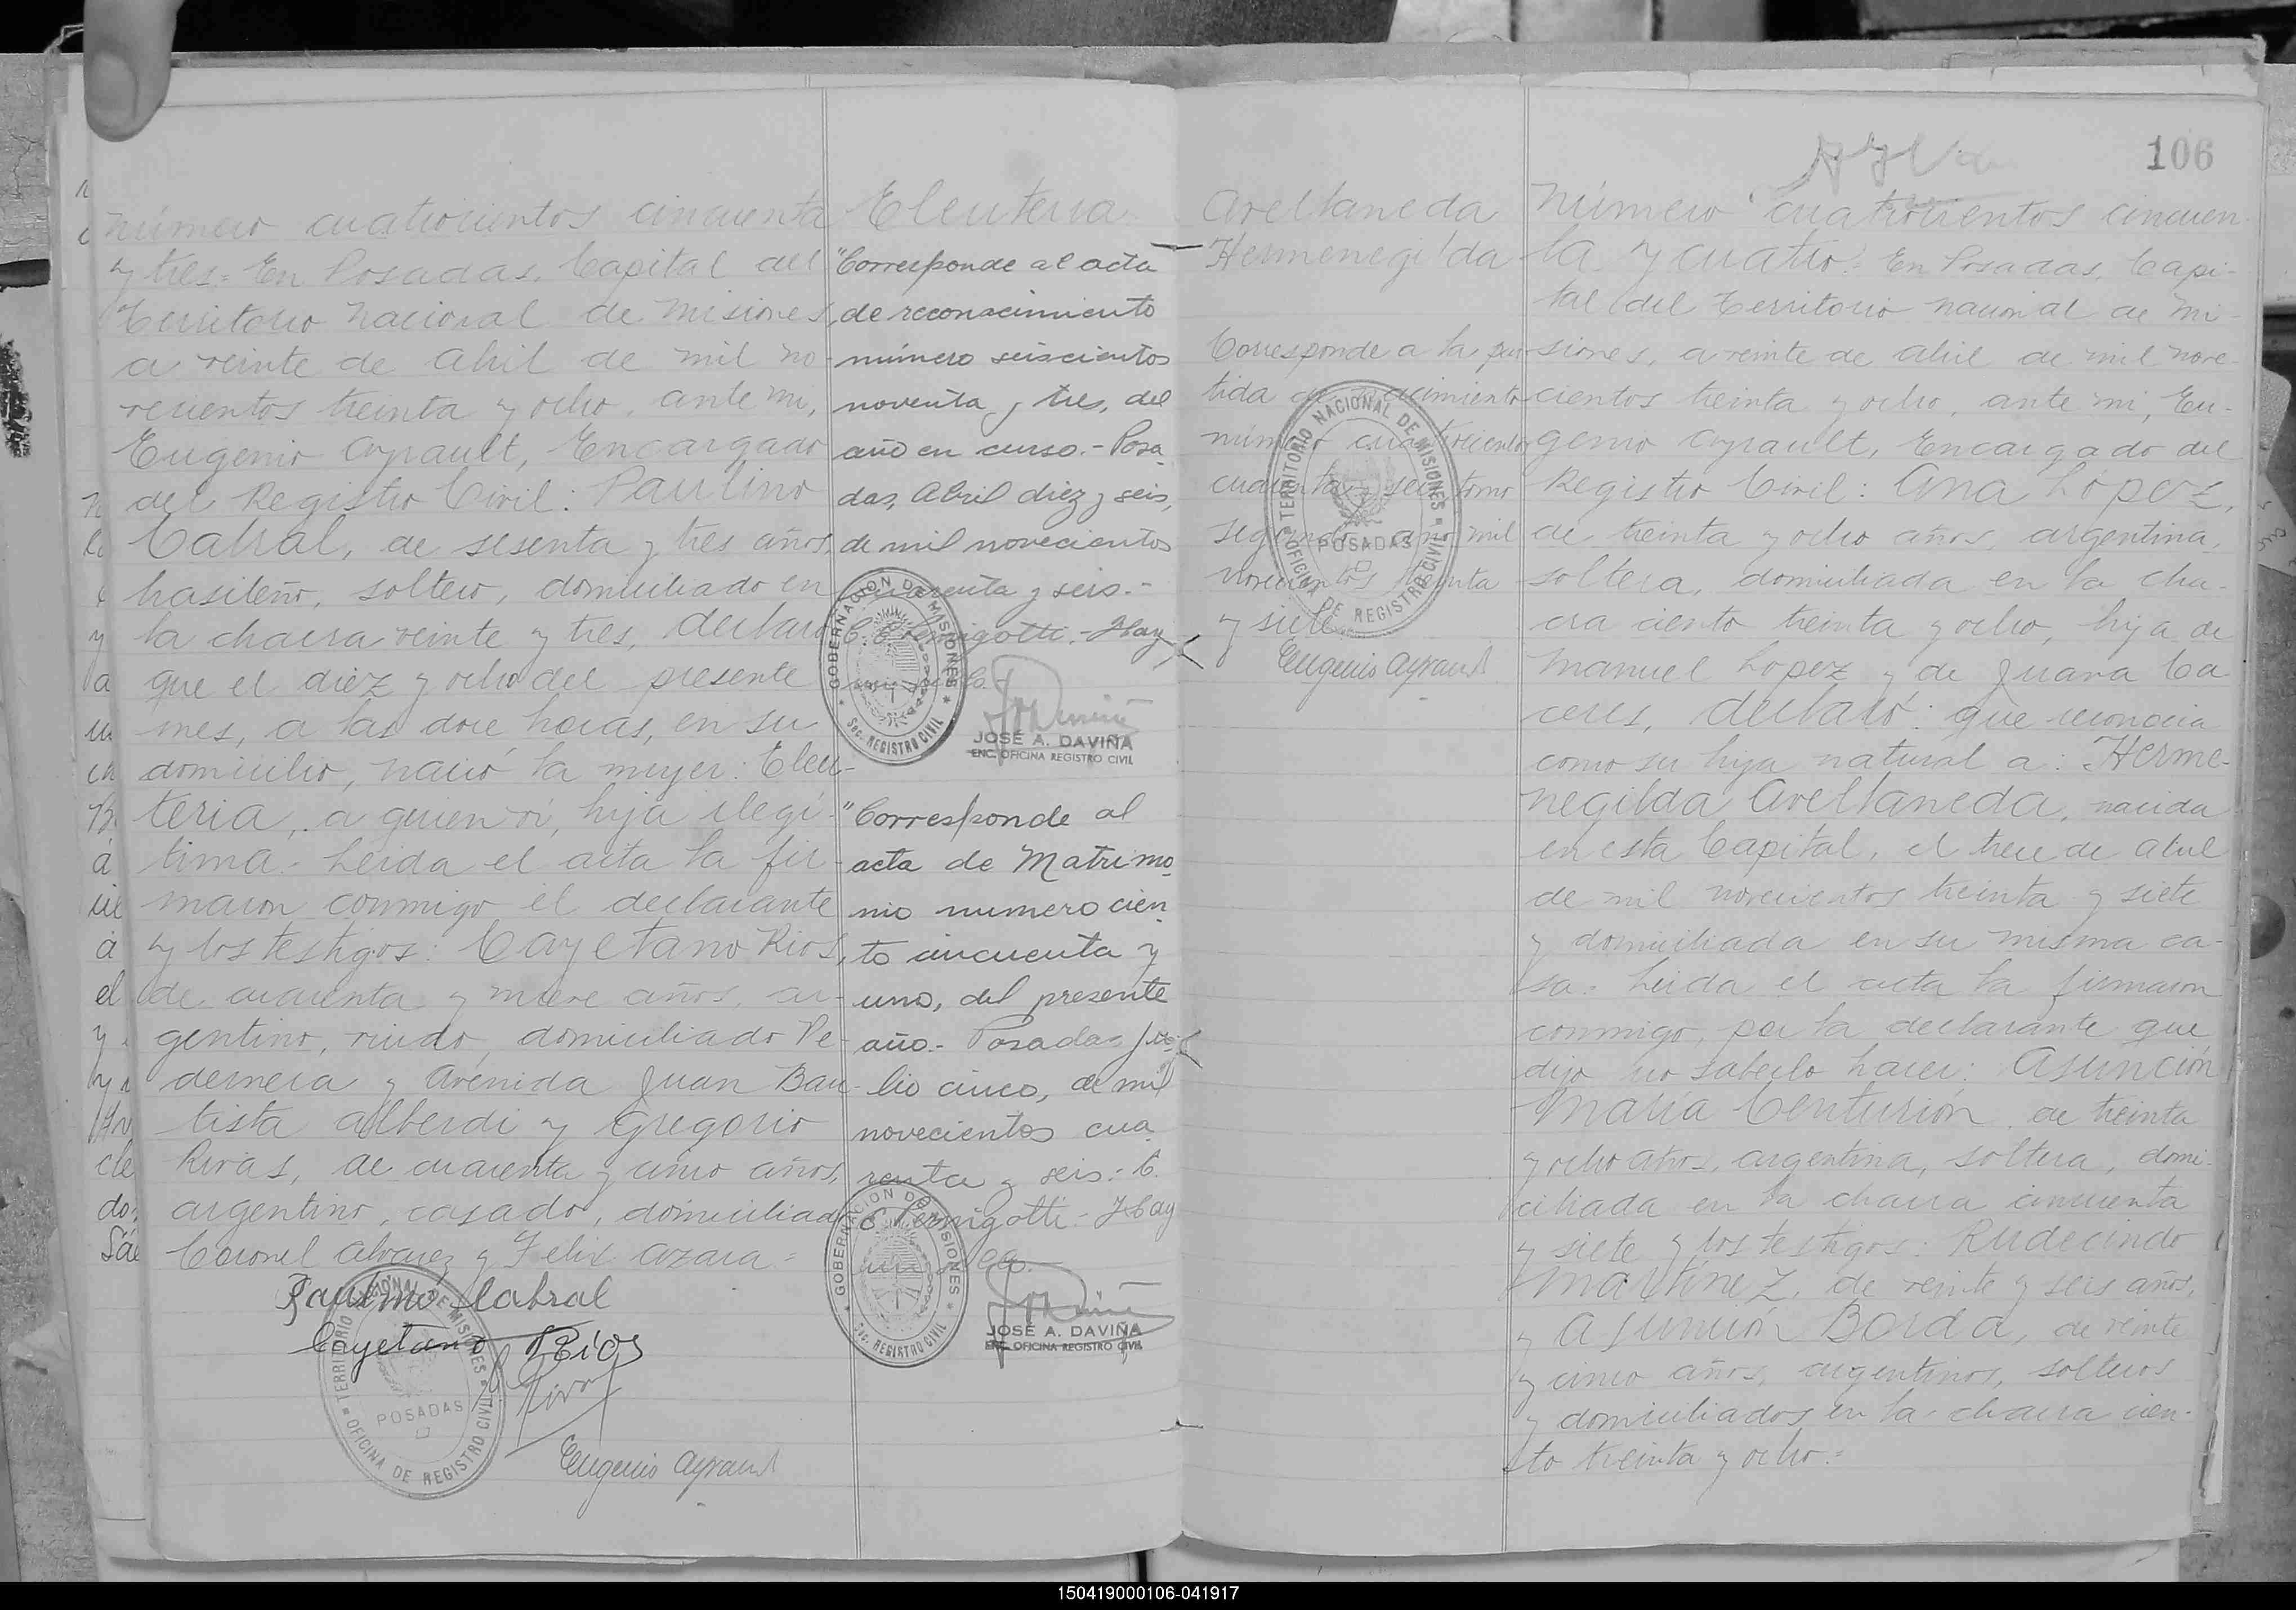 número cuatrocientos cincuenta
y tres= En Posadas, Capital del
Territorio Nacional de Misiones,
a veinte de abril de mil no-
vecientos treinta y ocho, ante mi,
Eugenio Ayrault, Encargado
del Registro Civil: Paulino
Cabral, de sesenta y tres años,
brasileño, soltero, domiciliado en
la chacra veinte y tres, declaró
que el diez y ocho del presente
mes, a las doce horas, en su
domicilio, nació la mujer: Eleu-
teria, a quien vi, hija ilegí-
tima.- Leída el acta la fir-
maron conmigo el declarante
y los testigos: Cayetano Rios,
de cuarenta y nueve años, ar-
gentino, viudo, domiciliado Pe-
dernera y Avenida Juan Bau-
tista Alberdi y Gregorio
Rivas, de cuarenta y cinco años,
argentino, casado, domiciliado
Coronel Alvarez y Felix Azara=
Paulino Cabral
Cayetano Rios
Eugenio Ayrault
TERRITORIO NACIONAL DE MISIONES
POSADAS
OFICINA DE REGISTRO CIVIL
Eleuteria
"Corresponde al acta
de reconocimiento
número seiscientos
noventa y tres, del
año en curso.- Posa-
das, Abril diez y seis,
de mil novecientos
cuarenta y seis.-
C. E. Pernigotti.- Hay
un sello.-
GOBERNACION DE MISIONES
Sec. REGISTRO CIVIL
JOSÉ A. DAVIÑA
ENC. OFICINA REGISTRO CIVIL
"Corresponde al
acta de Matrimo-
nio numero cien-
to cincuenta y
uno, del presente
año.- Posadas, Ju-
lio cinco, de mil
novecientos cua-
renta y seis.- C.
E. Pernigotti.- Hay
un sello.-
GOBERNACION DE MISIONES
Sec. REGISTRO CIVIL
JOSÉ A. DAVIÑA
ENC. OFICINA REGISTRO CIVIL
106
Avellaneda
Hermenegilda
Corresponde a la par-
tida de nacimiento
número cuatrociento
cuarenta y seis tomo
segundo año mil
novecientos treinta
y siete
Eugenio Ayrault
TERRITORIO NACIONAL DE MISIONES
POSADAS
OFICINA DE REGISTRO CIVIL
Número cuatrocientos cincuen-
ta y cuatro.= En Posadas, Capi-
tal del Territorio nacional de Mi-
siones, a veinte de abril de mil nove-
cientos treinta y ocho, ante mi, Eu-
genio Ayrault, Encargado del
Registro Civil: Ana López,
de treinta y ocho años, argentina,
soltera, domiciliada en la cha-
cra ciento treinta y ocho, hija de
Manuel López y de Juana Ca
ceres, declaró: que reconocia
como su hija natural a: Herme-
negilda Avellaneda, nacida
en esta Capital, el trece de abril
de mil novecientos treinta y siete
y domiciliada en su misma ca-
sa.- Leida el acta la firmaron
conmigo, por la declarante que
dijo no saberlo hacer: Asunción
María Centurión, de treinta
y ocho años, argentina, soltera, domi-
ciliada en la chacra cincuenta
y siete y los testigos: Rudecindo
Martínez, de veinte y seis años,
y Asunción Borda, de veinte
y cinco años, argentinos, solteros
y domiciliados en la chacra cien-
to treinta y ocho.=
150419000106-041917